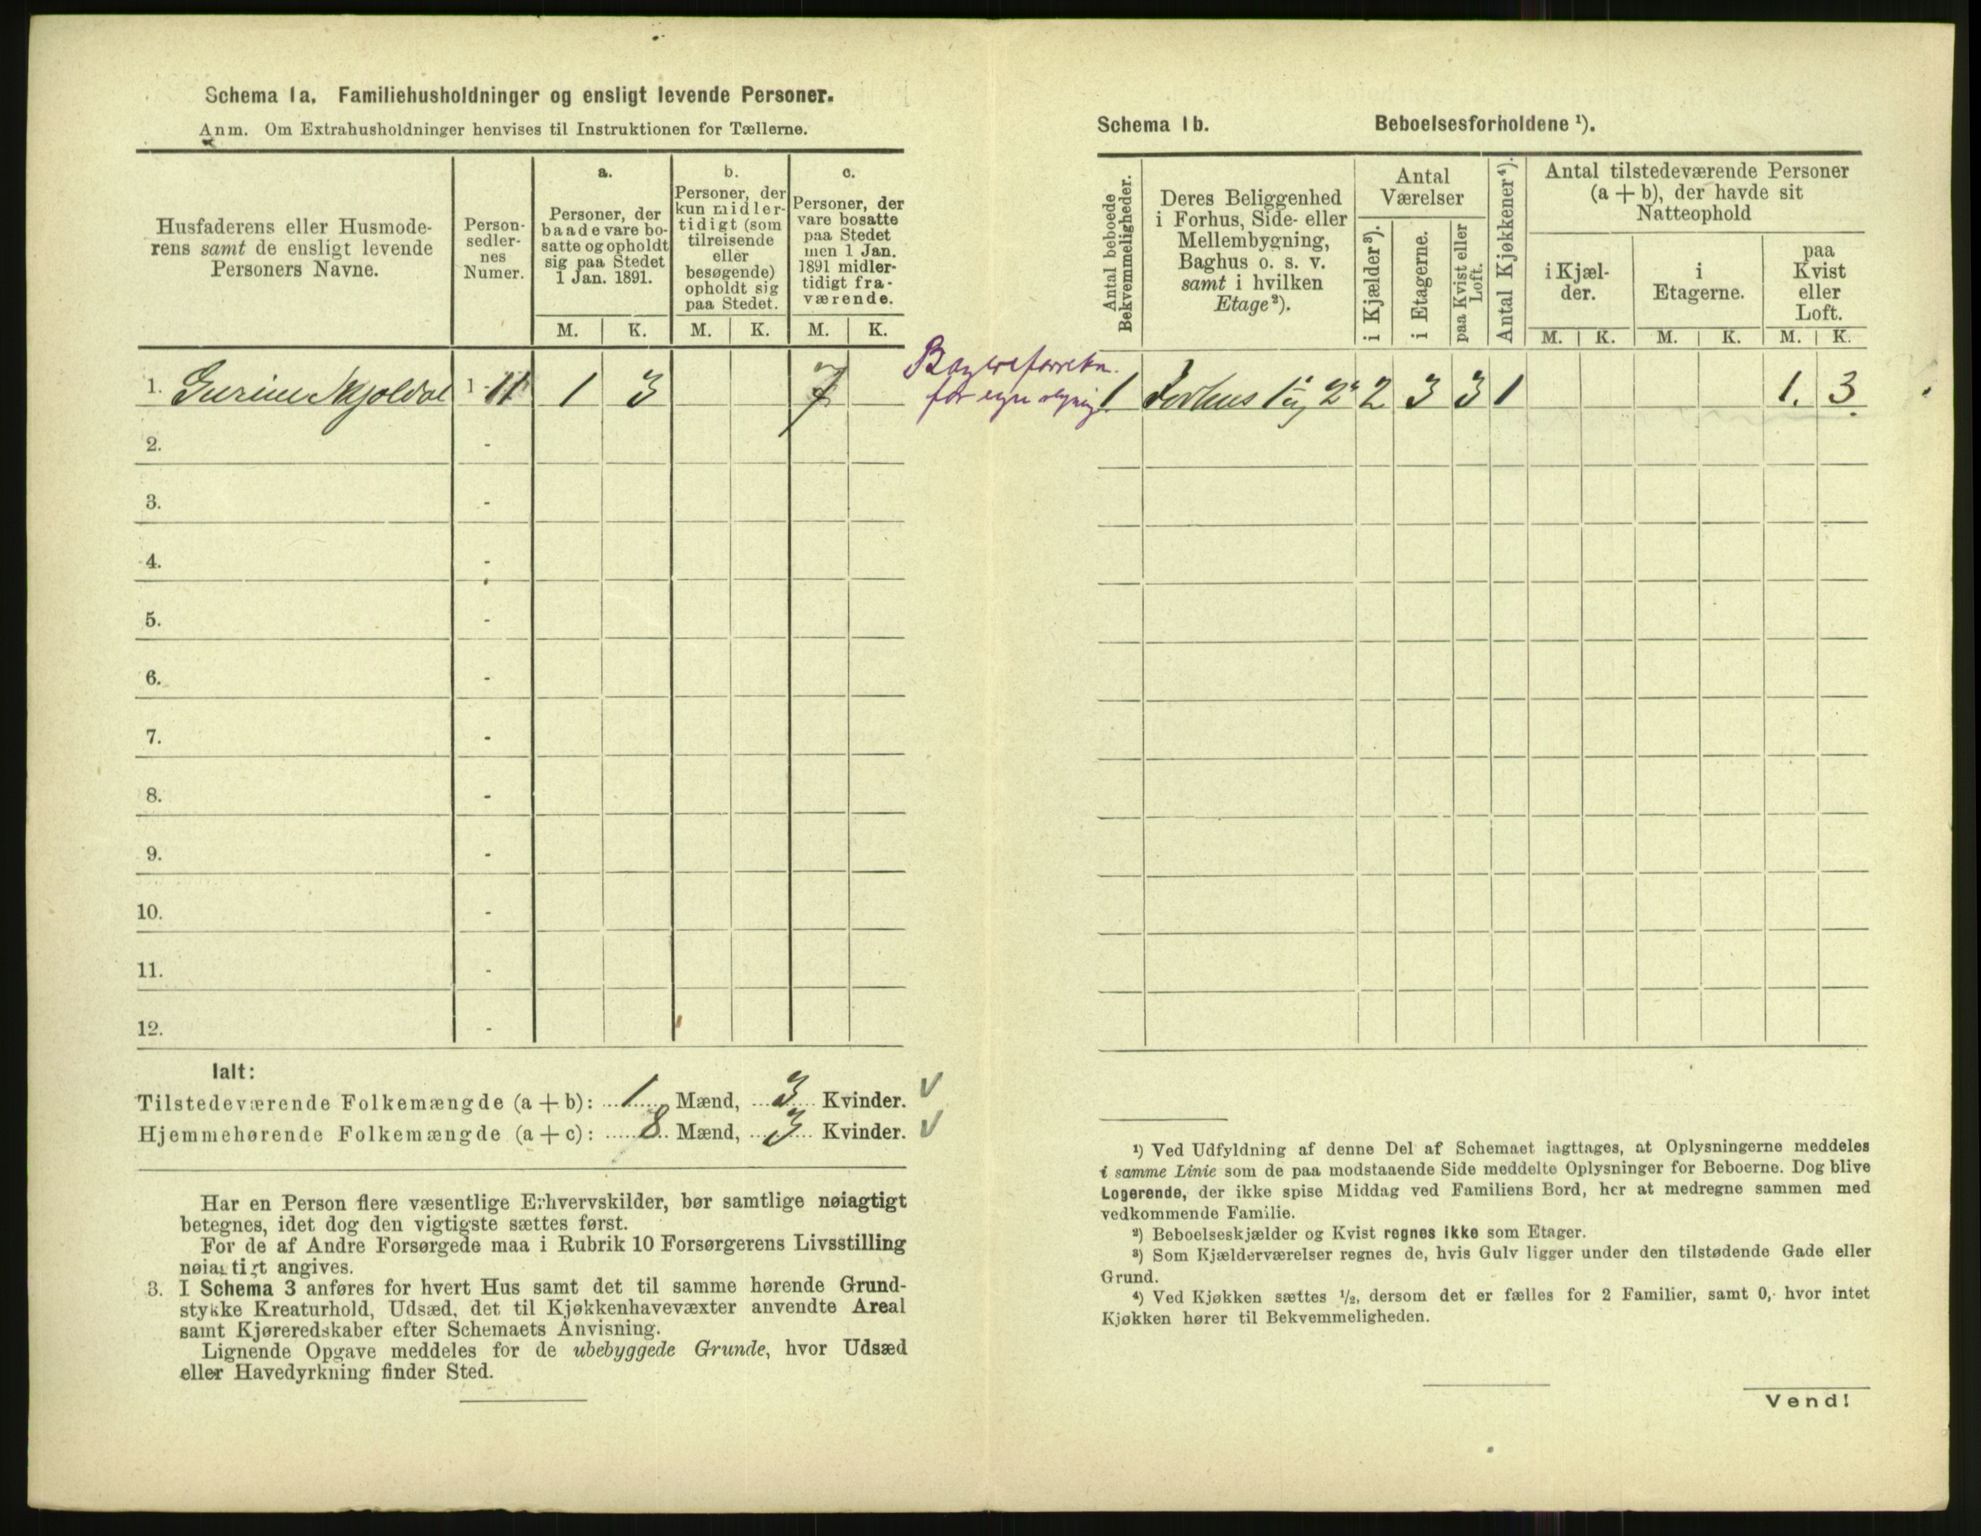 Schema 1a. Familiehusholdninger og ensligt levende Personer.
Anm. Om Extrahusholdninger henvises til Instruktionen for Tællerne.
Husfaderens eller Husmode-
rens samt de ensligt levende
Personers Navne.
Person-
sedler-
nes
Numer.
a.
Personer, der
baade vare bo-
satte og opholdt
sig paa Stedet
1 Jan. 1891.
b.
Personer, der
kun midler-
tidigt (som
tilreisende
eller
besøgende)
opholdt sig
paa Stedet.
c.
Personer, der
vare bosatte
paa Stedet
men 1 Jan.
1891 midler-
tidigt fra-
værende.
M. K. M. K. M. K.
1. Gurine Skjoldal 1 - 11 1 3 7
2. -
3. -
4. -
5. -
6. -
7. -
8. -
9. -
10. -
11. -
12. -
Ialt:
Tilstedeværende Folkemængde (a + b): 1 Mænd, 3 Kvinder. √
Hjemmehørende Folkemængde (a + c): 8 Mænd, 3 Kvinder. √
Har en Person flere væsentlige Erhvervskilder, bør samtlige nøiagtigt
betegnes, idet dog den vigtigste sættes først.
For de af Andre Forsørgede maa i Rubrik 10 Forsørgerens Livsstilling
nøiagtigt angives.
3. I Schema 3 anføres for hvert Hus samt det til samme hørende Grund-
stykke Kreaturhold, Udsæd, det til Kjøkkenhavevæxter anvendte Areal
samt Kjøreredskaber efter Schemaets Anvisning.
Lignende Opgave meddeles for de ubebyggede Grunde, hvor Udsæd
eller Havedyrkning finder Sted.
Schema 1b. Beboelsesforholdene ¹).
Antal beboede
Bekvemmeligheder.
Deres Beliggenhed
i Forhus, Side- eller
Mellembygning,
Baghus o. s. v.
samt i hvilken
Etage²).
Antal
Værelser
i Kjælder³).
i Etagerne.
paa Kvist eller
Loft.
Antal Kjøkkener⁴).
Antal tilstedeværende Personer
(a + b), der havde sit
Natteophold
i Kjæl-
der.
i
Etagerne.
paa
Kvist
eller
Loft.
M. K. M. K. M. K.
for egen
1 Forhus 1 og 2 2 3 3 1 1. 3
¹) Ved Udfyldning af denne Del af Schemaet iagttages, at Oplysningerne meddeles
i samme Linie som de paa modstaaende Side meddelte Oplysninger for Beboerne. Dog blive
Logerende, der ikke spise Middag ved Familiens Bord, her at medregne sammen med
vedkommende Familie.
²) Beboelseskjælder og Kvist regnes ikke som Etager.
³) Som Kjælderværelser regnes de, hvis Gulv ligger under den tilstødende Gade eller
Grund.
⁴) Ved Kjøkken sættes ½, dersom det er fælles for 2 Familier, samt 0, hvor intet
Kjøkken hører til Bekvemmeligheden.
Vend!